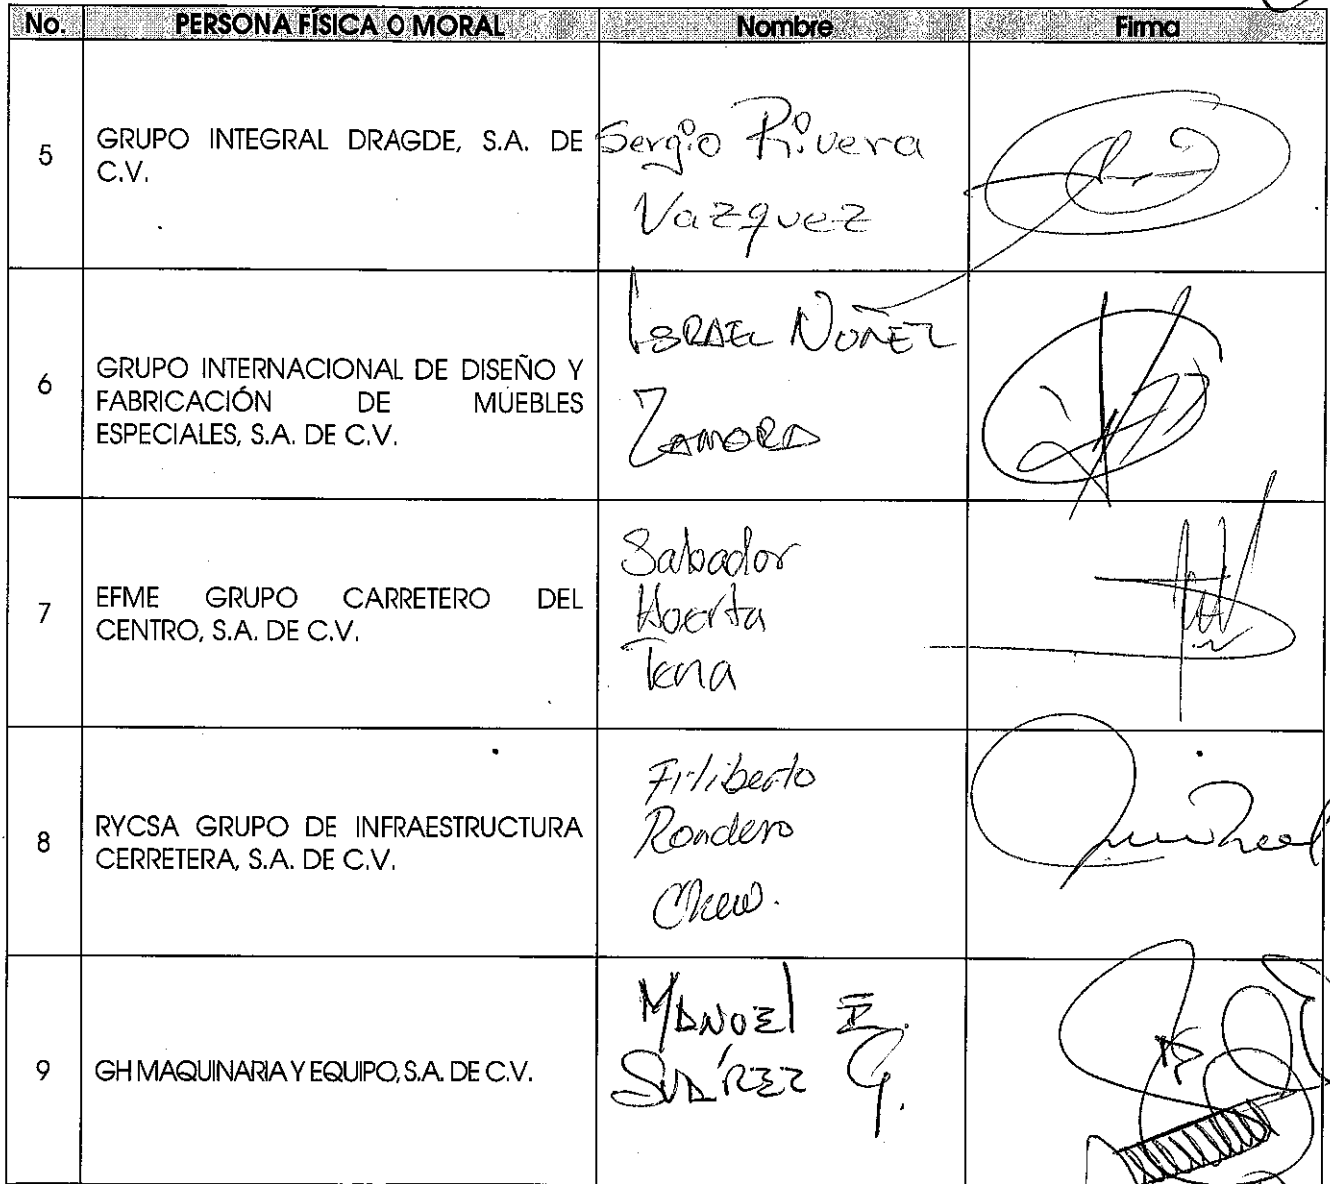 No. PERSONA FÍSICA O MORAL Nombre Firma
5
GRUPO INTEGRAL DRAGDE, S.A. DE
C.V.
Sergio Rivera
Vazquez
6
GRUPO INTERNACIONAL DE DISEÑO Y
FABRICACIÓN DE MUEBLES
ESPECIALES, S.A. DE C.V.
ISRAEL NUÑEZ
ZAMORA
7
EFME GRUPO CARRETERO DEL
CENTRO, S.A. DE C.V.
Salvador
Huerta
Tena
8
RYCSA GRUPO DE INFRAESTRUCTURA
CERRETERA, S.A. DE C.V.
Filiberto
Rondero
Chew.
9
GH MAQUINARIA Y EQUIPO, S.A. DE C.V.
MANUEL E.
SUÁREZ G.